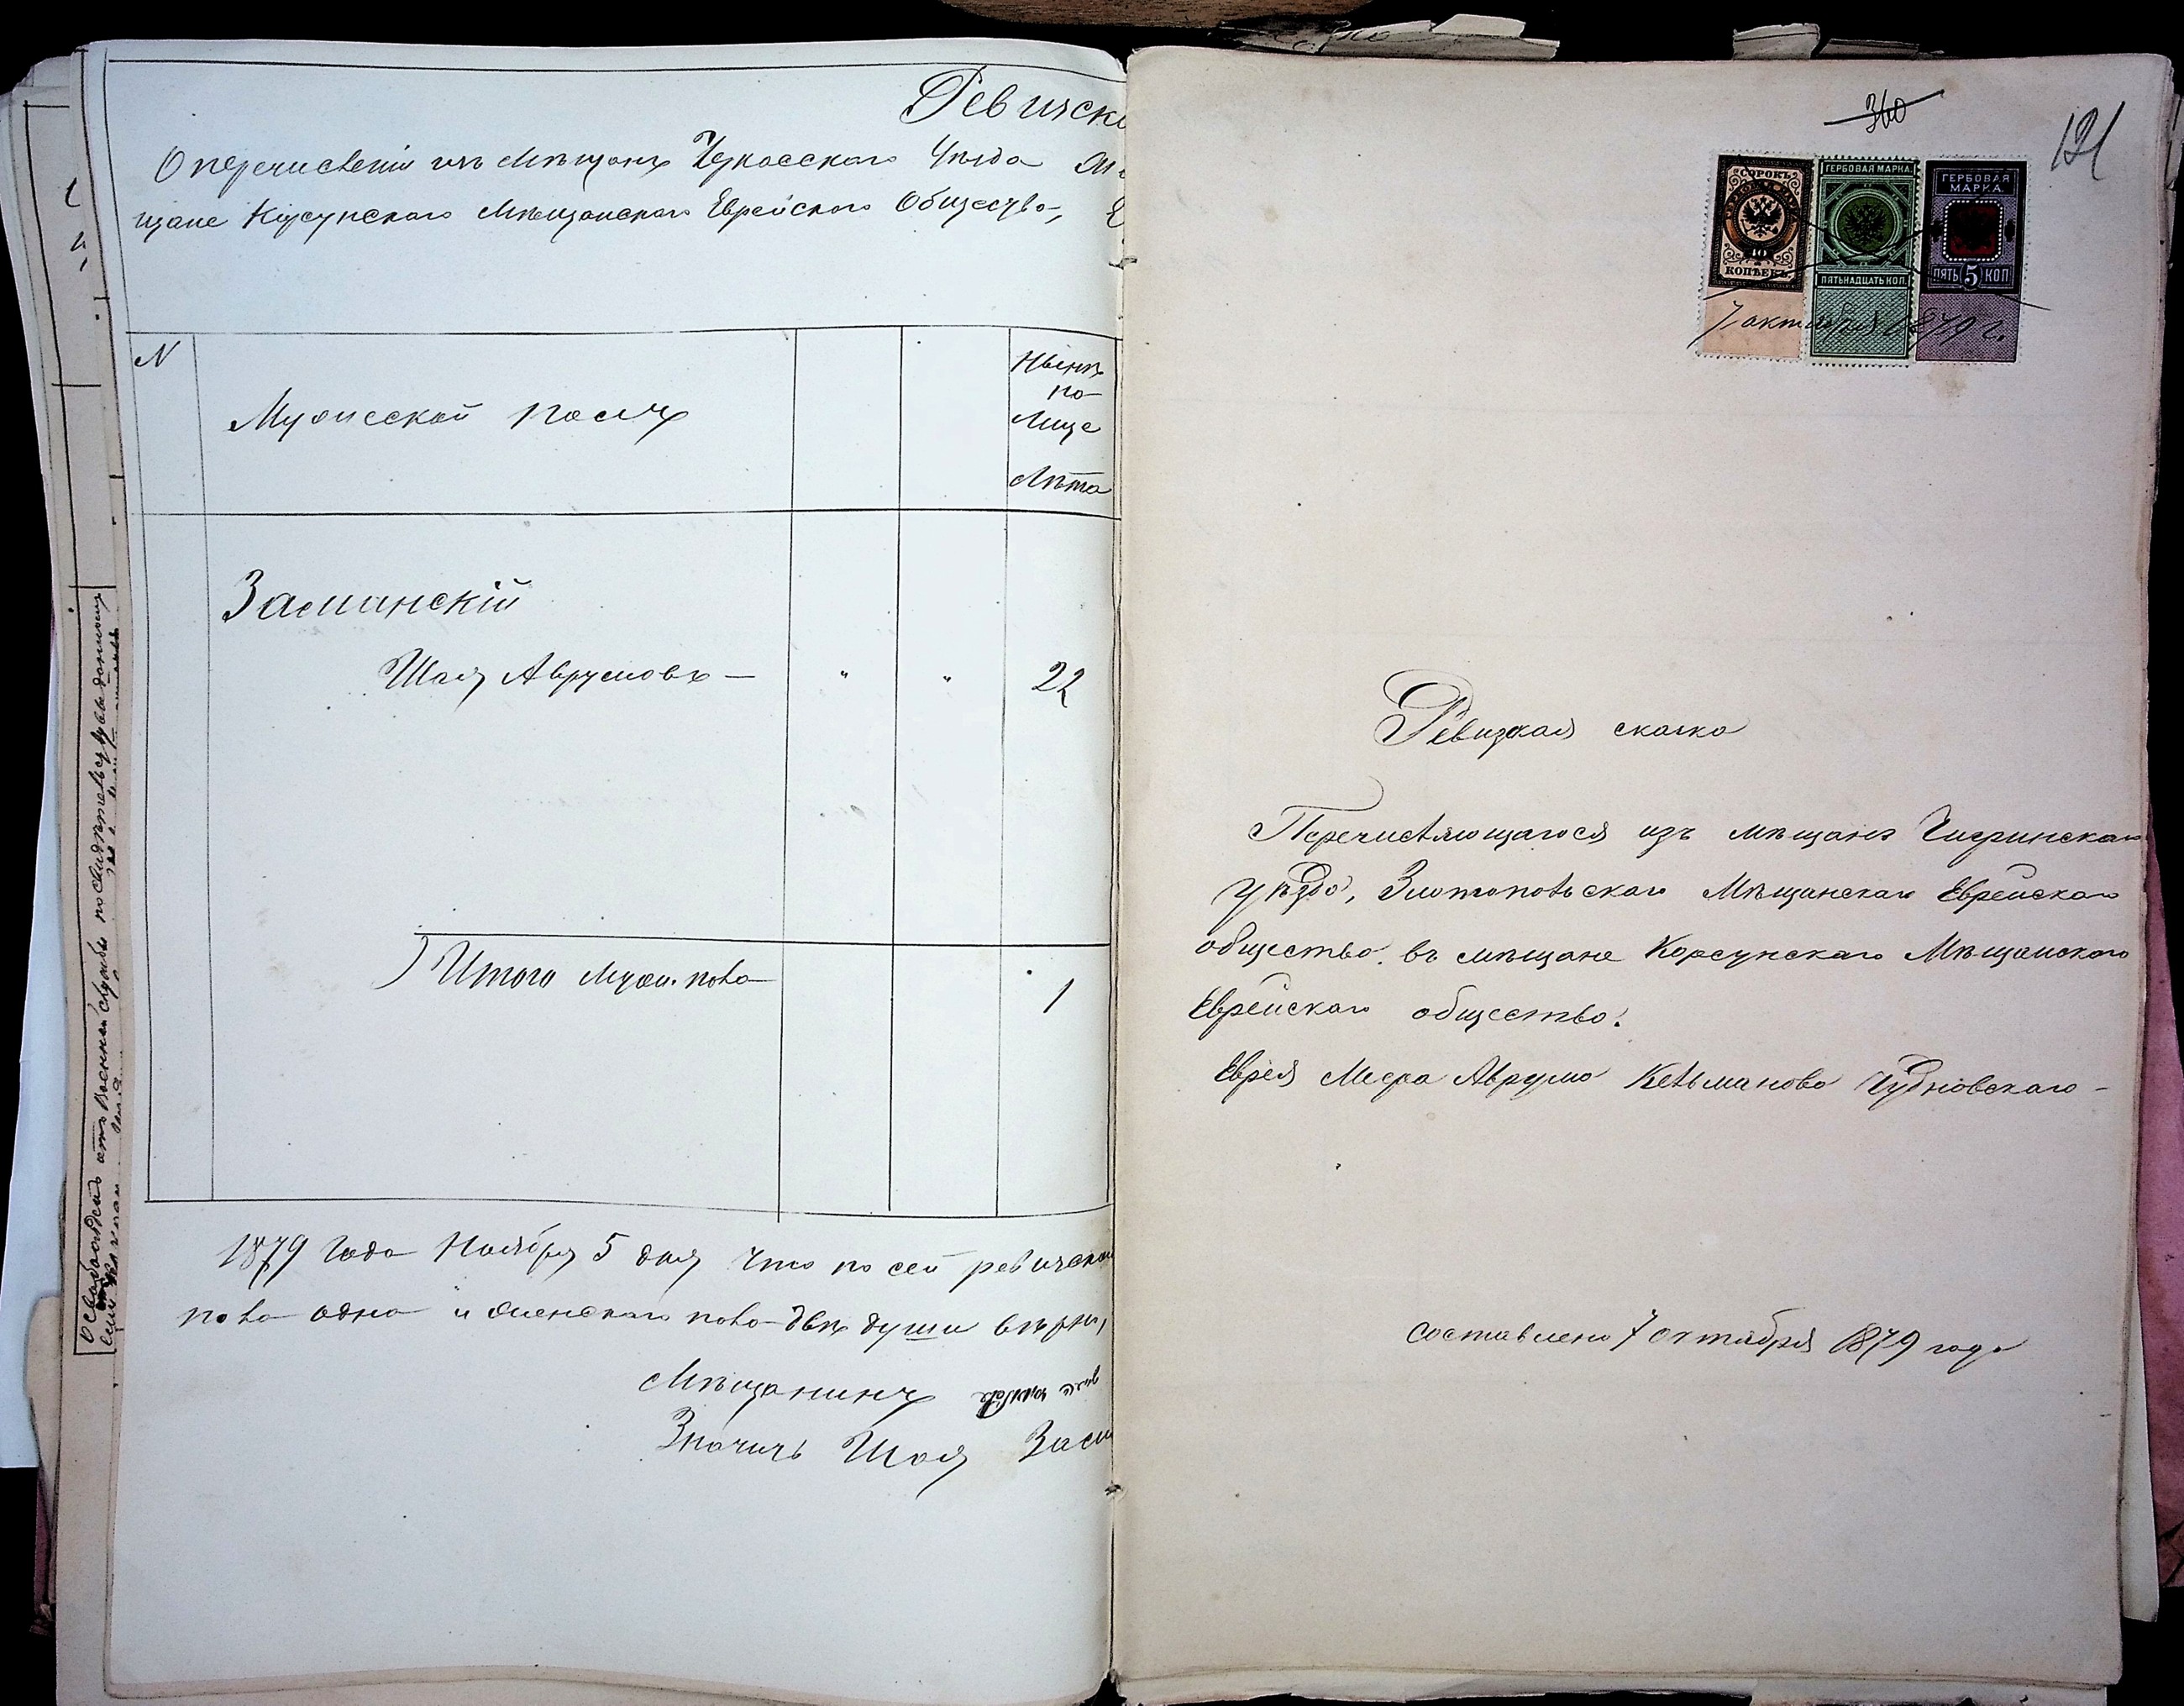 Ревизск
О перечислении изъ Мѣщанъ Черкасскаго Уѣзда
щане Корсунскаго Мѣщанскаго Еврейскаго Общества,
N
Мужескій полъ
Нынѣ
на
Лице
Лѣта
Засшанскій
Шая Аврумовъ — " " 22
Итого Муж. пола 1
1879 Года Ноября 5 дня что по сей ревизской
пола одна и женскаго пола двѣ души вѣрно,
Мѣщанинъ
Значитъ Шая Засш
Освобожденъ отъ Военной Службы по Свидѣтельству
360
121
СОРОКЪ
КОПѢЕКЪ
ГЕРБОВАЯ МАРКА.
ПЯТЬНАДЦАТЬ КОП
ГЕРБОВАЯ
МАРКА.
ПЯТЬ 5 КОП
7 октября 1879 г.
Ревизкая сказка
Перечисляющагося изъ мѣщанъ Чигринскаго
уѣзда, Златопольскаго Мѣщанскаго Еврейскаго
общества. въ мѣщане Корсунскаго Мѣщанского
Еврейскаго общества.
Еврея Меера Аврума Кельманова Чудновскаго —
Составлено 7 октября 1879 года